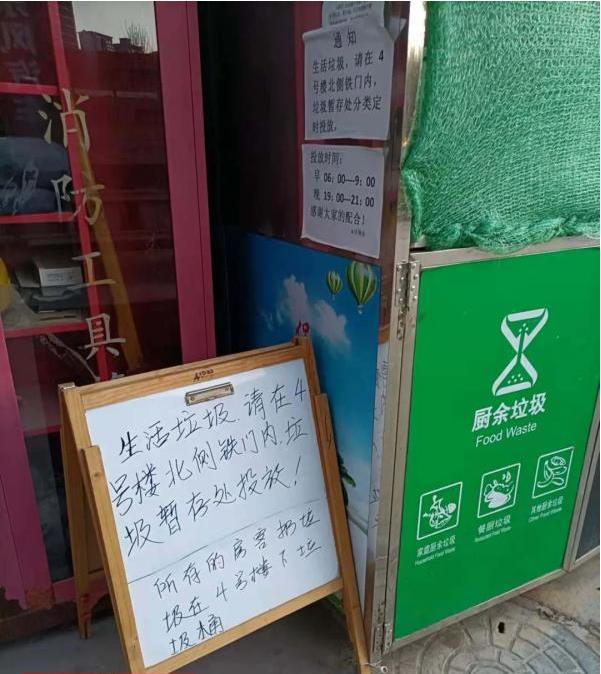 通知
生活垃圾，请在 4
号楼北侧铁门内，
垃圾暂存处分类定
时投放。
投放时间：
早 06：00—9：00
晚 19：00—21：00
感谢大家的配合！
消防工具
生活垃圾.请在4
号楼北侧铁门内.垃
圾暂存处投放！
所有的房客扔垃
圾在4号楼下垃
圾桶
厨余垃圾
Food Waste
家庭厨余垃圾
Household Food Waste
餐厨垃圾
Restaurant Food Waste
其他厨余垃圾
Other Food Waste